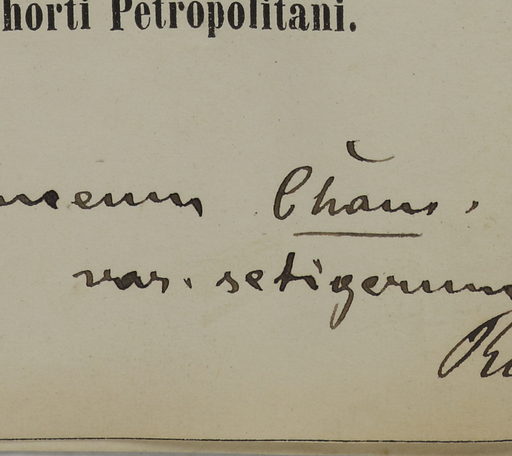 horti Petropolitani.
Cham.
var. setigerum